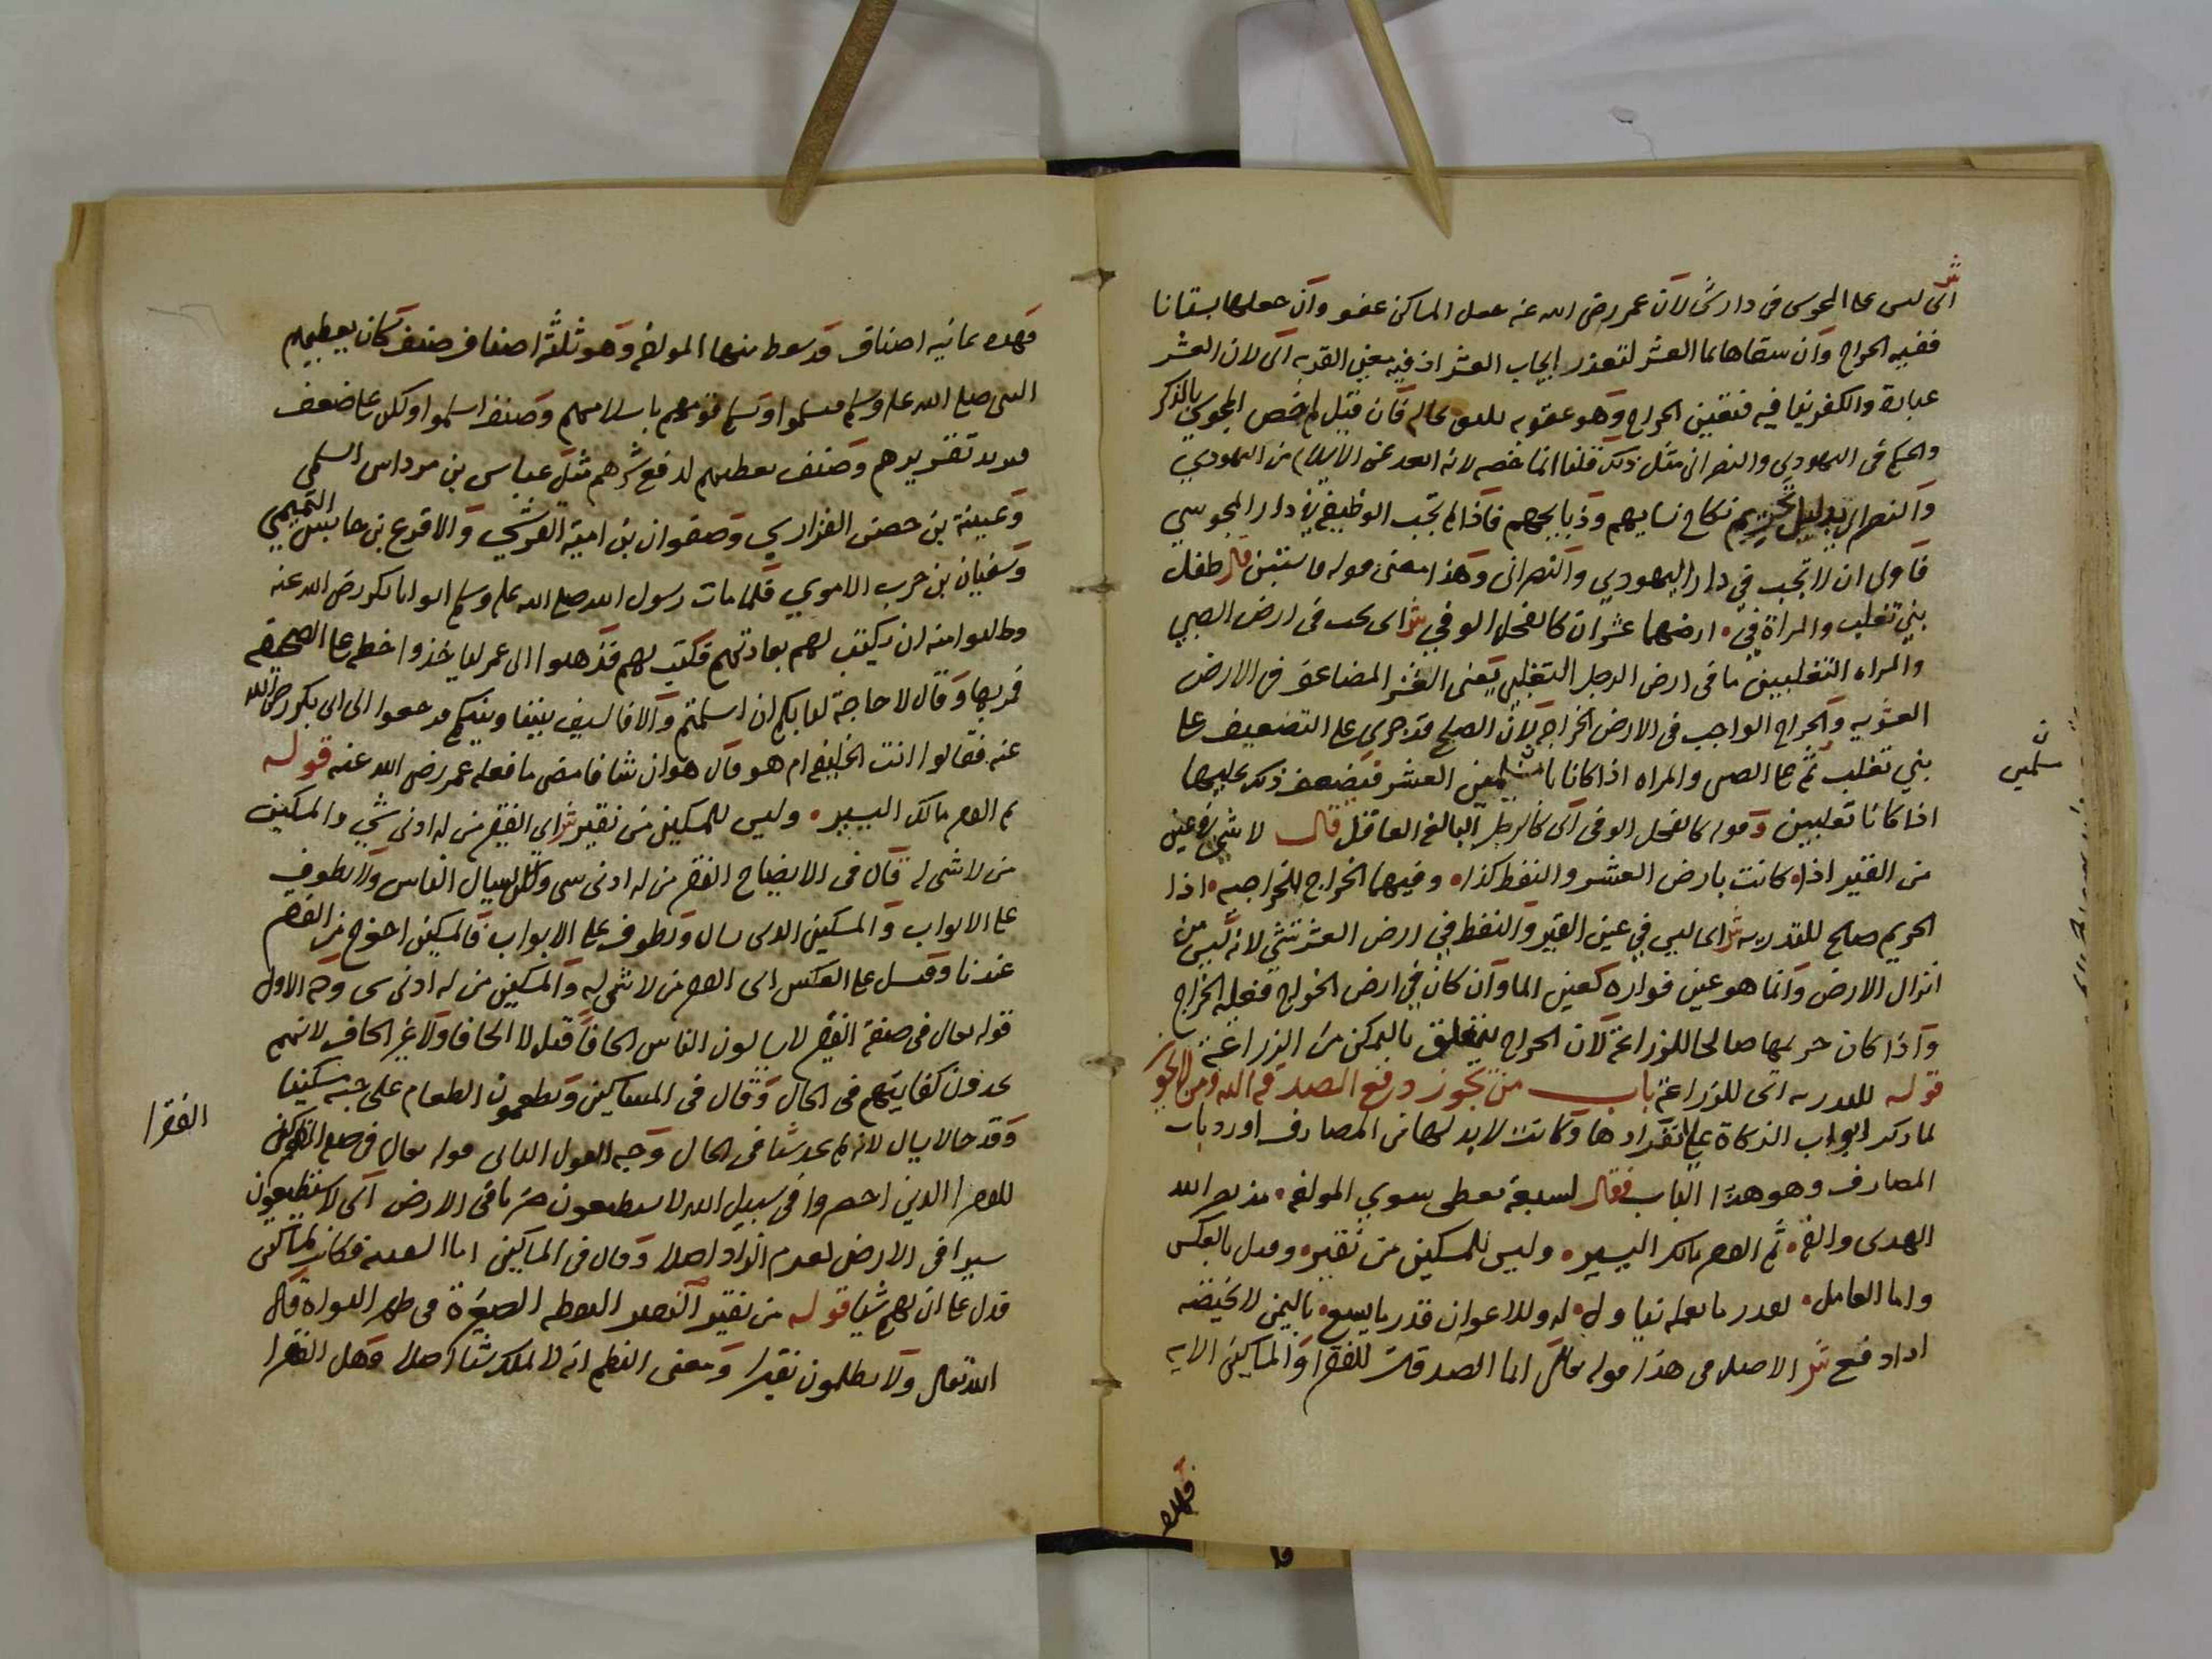 ش
اى ليس على المجوسى فى دار شى لان عمر رضى الله عنه جعل المساكن عفو وان جعلها بستانا
ففيه الخراج وان سقاها بما العشر لتعذر ايجاب العشر اذ فيه معنى القربه اى لان العشر
عبادة والكفر ينافيه فتعين الخراج وهو عقوبه يليق بحاله فان قيل لم خص المجوسى بالذكر
والحكم فى اليهودى والنصرانى مثل ذلك قلنا انما خصه لانه ابعد عن الاسلام من اليهودى
والنصرانى بدليل تحريم نكاح نسايهم وذبايحهم فاذا لم تجب الوظيفة فى دار المجوسي
فاولى ان لا تجب في دار اليهودي والنصرانى وهذا معنى قوله قال طفل
بني تغلب والمراة في ارضهما عشران كالفحل الوفي ش اى يجب فى ارض الصبي
والمراه التغلبيين ما فى ارض الرجل التغلبي يعنى العشر المضاعف فى الارض
العشريه والخراج الواجب فى الارض الخراجيه لان الصلح قد جرى على التضعيف على
بني تغلب ثم على الصبى والمراه اذا كانا العشر فيضعف ذلك عليهما
اذا كانا تغلبيين وقوله كالفحل الوفى اى كالرجل البالغ العاقل قال لا شى فى عين
من القير اذا كانت بارض العشر والنفط كذا وفيهما الخراج للخراجيه اذا
الحريم صلح للقدريه ش اى ليس في عين القير والنفط في ارض العشر شى لانه ليس من
انزال الارض وانما هو عين فواره كعين الما وان كان في ارض الخراج فعليه الخراج
واذا كان حريمها صالحا للزراعة لان الخراج يتعلق بالتمكن من الزراعة
قوله للقدريه اى للزراعة باب من تجوز دفع الصدقه اليه ومن لا يجوز
لما ذكر ابواب الزكاة على انفرادها وكانت لابد لها من المصارف اورد باب
المصارف وهو هذا الباب فقال لسبعة تعطى سوي المولفه
ثم الفقير مالك اليسير وليس للمسكين من نقير وقيل بالعكس
واما العامل بقدر ما عمله تناوله له وللاعوان قدر ما يسع
ش الاصل فى هذا قوله تعالى انما الصدقات للفقرا والمساكين الايه
فهذه
سلمين
فهذه ثمانيه اصناف قد سقط منها المولفة وهو ثلثة اصناف صنف كان يعطيهم
النبى صلى الله عليه وسلم ليسلموا ويسلم قومهم باسلامهم وصنف اسلموا ولكن على ضعف
فيزيد تقريرهم وصنف يعطيهم لدفع شرهم مثل عباس بن مرداس السلمي
وعيينة بن حصن الفزاري وصفوان بن امية القرشي والاقرع بن حابس التميمي
وسفيان بن حرب الاموي فلما مات رسول الله صلى الله عليه وسلم اتوا ابا بكر رضى الله عنه
وطلبوا منه ان يكتب لهم بعادتهم فكتب لهم فذهبوا الى عمر ليأخذوا خطه على الصحيفه
فمزقها وقال لا حاجة لنا بكم ان اسلمتم والا فالسيف بيننا وبينكم فرجعوا الى ابى بكر رضى الله
عنه فقالوا انت الخليفه ام هو قال هو ان شا فامضى ما فعله عمر رضى الله عنه قوله
ثم الفقير مالك اليسير وليس للمسكين من نقير ش اى الفقير من له ادنى شي والمسكين
من لا شى له قال فى الايضاح الفقير من له ادنى شى ولا يسال الناس ولا يطوف
على الابواب والمسكين الذى يسال ويطوف على الابواب فالمسكين احوج من الفقير
عندنا وقيل على العكس اى الفقير من لا شى له والمسكين من له ادنى شى وجه الاول
قوله تعالى فى صفة الفقير لا يسالون الناس الحافا قيل لا الحافا ولا غير الحاف لانهم
يجدون كفايتهم فى الحال وقال فى المساكين ويطعمون الطعام على حبه مسكينا
وقد جا لا يسال لانه لم يجد شيا فى الحال وجه القول الثانى قوله تعالى فى
للفقرا الذين احصروا فى سبيل الله لا يستطيعون ضربا فى الارض اى لا يستطيعون
سيرا فى الارض لعدم الزاد اصلا وقال فى المساكين اما السفينه فكانت لمساكين
فدل على ان لهم شيا قوله من نقير النقير النقطه الصغيرة فى ظهر النواة قال
الله تعالى ولا يظلمون نقيرا ومعنى النظم انه لا يملك شيا اصلا وهل الفقرا
الفقرا